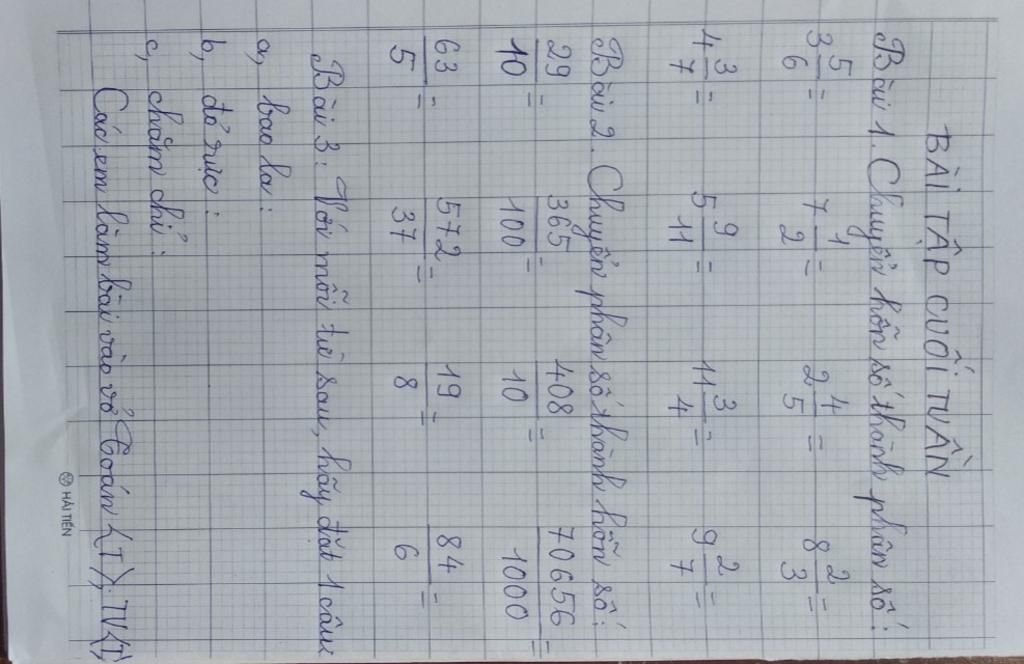 BÀI TẬP CUỐI TUẦN
Bài 1. Chuyển hỗn số thành phân số:
3 5/6 = 7 1/2 = 2 4/5 = 8 2/3 =
4 3/7 = 5 9/11 = 11 3/4 = 9 2/7 =
Bài 2. Chuyển phân số thành hỗn số:
29/10 = 365/100 = 408/10 = 70656/1000 =
63/5 = 572/37 = 19/8 = 84/6 =
Bài 3: Với mỗi từ sau, hãy đặt 1 câu
a, bao la:
b, đỏ rực:
c, chăm chỉ:
Các em làm bài vào vở Toán (T), TV (T)
HẢI TIẾN